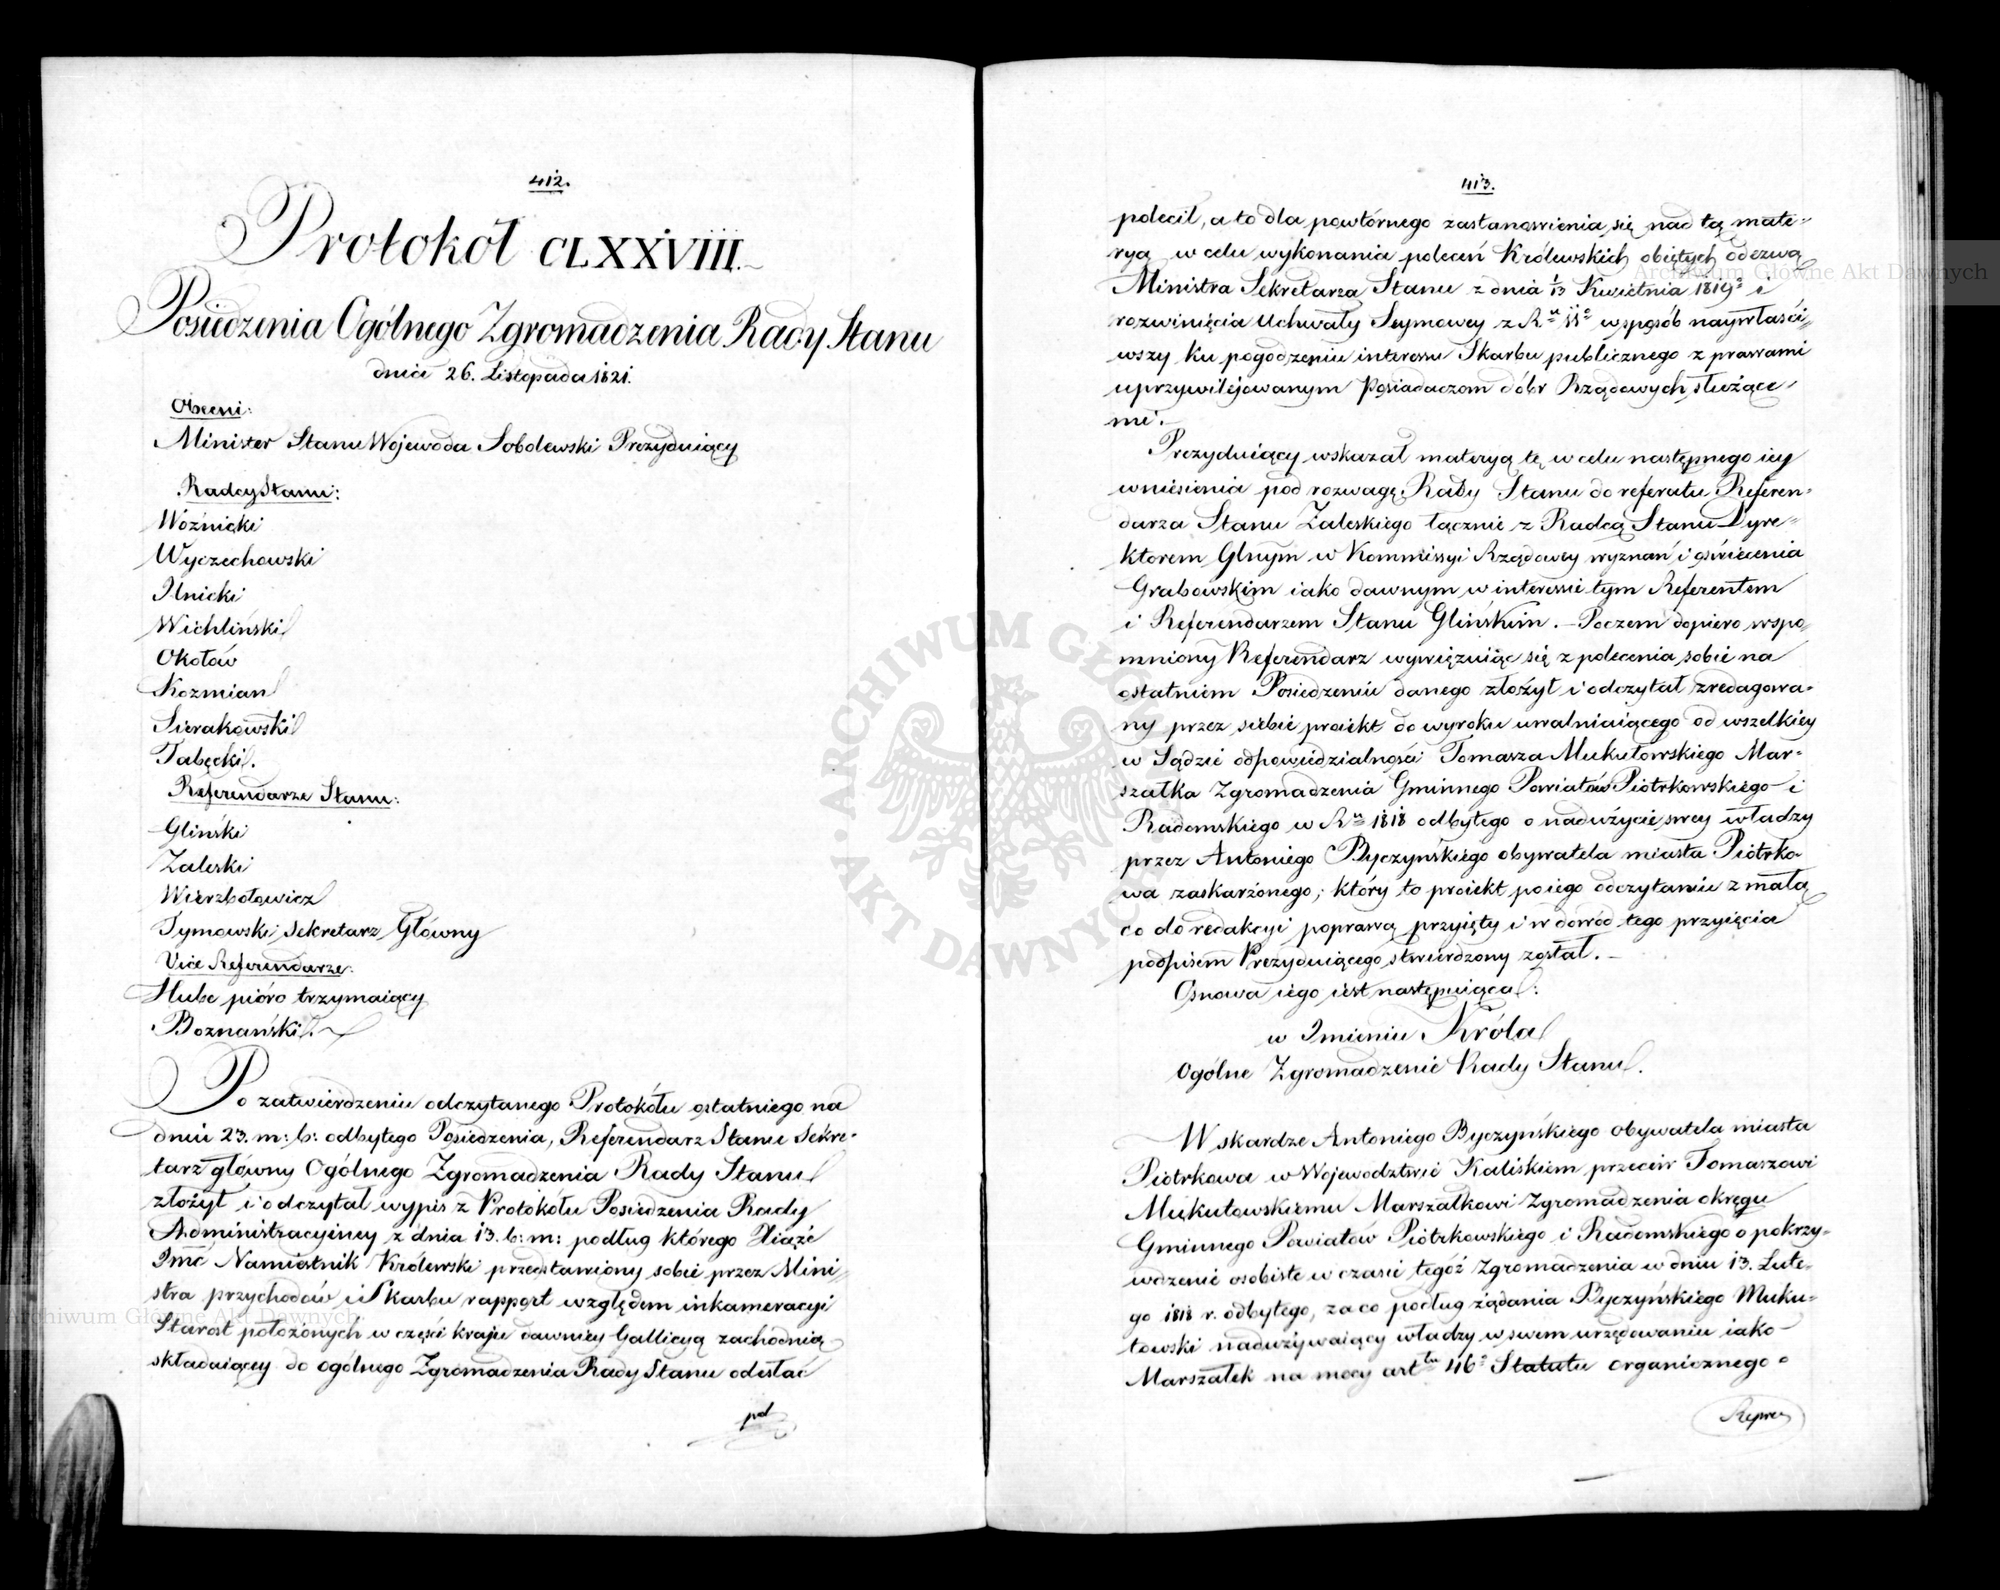 412.
Protokół CLXXVIII.
Posiedzenia Ogólnego Zgromadzenia Rady Stanu
dnia 26. Listopada 1821.
Obecni:
Minister Stanu Wojewoda Sobolewski Prezyduiący
Radcy Stanu:
Woźnicki
Wyczechowski
Ilnicki
Wichliński
Okołów
Kozmian
Sierakowski
Tabęcki.
Referendarze Stanu:
Gliński
Zaleski
Wierzbołowicz
Tymowski Sekretarz Główny
Vice Referendarze:
Hube pióro trzymaiący
Boznański.
Po zatwierdzeniu odczytanego Protokółu ostatniego na
dniu 23. m: b: odbytego Posiedzenia, Referendarz Stanu Sekre-
tarz główny Ogólnego Zgromadzenia Rady Stanu
złożył i odczytał wypis z Protokółu Posiedzenia Rady
Administracyiney z dnia 13. b: m: podług którego Xiąże
Jmć Namiestnik Królewski przedstawiony sobie przez Mini-
stra przychodów i Skarbu rapport względem inkameracyi
Starost położonych w części kraju dawniey Gallicyą zachodnią
składaiącey do ogólnego Zgromadzenia Rady Stanu odesłać
pol
413.
polecił, a to dla powtórnego zastanowienia się nad tą mate-
ryą w celu wykonania poleceń Królewskich obiętych odezwą
Ministra Sekretarza Stanu z dnia 1/13 Kwietnia 1819º i
rozwinięcia Uchwały Seymowey z Ru 11º w sposób naywłaści-
wszy ku pogodzeniu interesu Skarbu publicznego z prawami
uprzywilejowanym Posiadaczom dóbr Rządowych służące-
mi.
Prezyduiący wskazał materyą tę w celu następnego iey
wniesienia pod rozwagę Rady Stanu do referatu Referen-
darza Stanu Zaleskiego łącznie z Radcą Stanu Dyre-
ktorem Glnym w Kommissyi Rządowey wyznań i oświecenia
Grabowskim iako dawnym w interessie tym Referentem
i Referendarzem Stanu Glińskim. – Poczem dopiero wspo-
mniony Referendarz wywięzuiąc się z polecenia sobie na
ostatniem Posiedzeniu danego złożył i odczytał zredagowa-
ny przez siebie proiekt do wyroku uwalniaiącego od wszelkiey
w Sądzie odpowiedzialności Tomasza Mukułowskiego Mar-
szałka Zgromadzenia Gminnego Powiatów Piotrkowskiego i
Radomskiego w Ru 1818 odbytego o nadużycie swey władzy
przez Antoniego Byczyńskiego obywatela miasta Piotrko-
wa zaskarżonego; który to proiekt po iego odczytaniu z małą
co do redakcyi poprawą przyięty i w dowód tego przyięcia
podpisem Prezyduiącego stwierdzony został. –
Osnowa iego iest następuiąca:
w Imieniu Króla
Ogólne Zgromadzenie Rady Stanu.
W skardze Antoniego Byczyńskiego obywatela miasta
Piotrkowa w Województwie Kaliskiem przeciw Tomaszowi
Mukułowskiemu Marszałkowi Zgromadzenia okręgu
Gminnego Powiatów Piotrkowskiego i Radomskiego o pokrzy-
wdzenie osobiste w czasie tegóż Zgromadzenia w dniu 13. Lute-
go 1818 r. odbytego, za co podług żądania Byczyńskiego Muku-
łowski nadużywaiący władzy w swem urzędowaniu iako
Marszałek na mocy arttu 46º Statutu organicznego o
Repre
ARCHIWUM GŁÓWNE AKT DAWNYCH
Archiwum Główne Akt Dawnych
Archiwum Główne Akt Dawnych